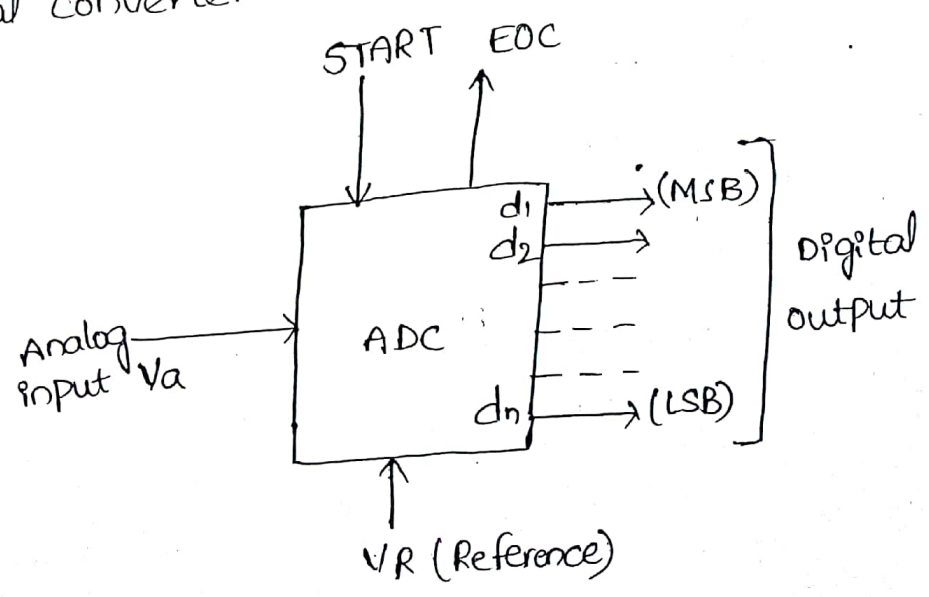 al Converter
START EOC
d1 (MSB)
d2
Digital
output
Analog
input Va
ADC
dn (LSB)
VR (Reference)